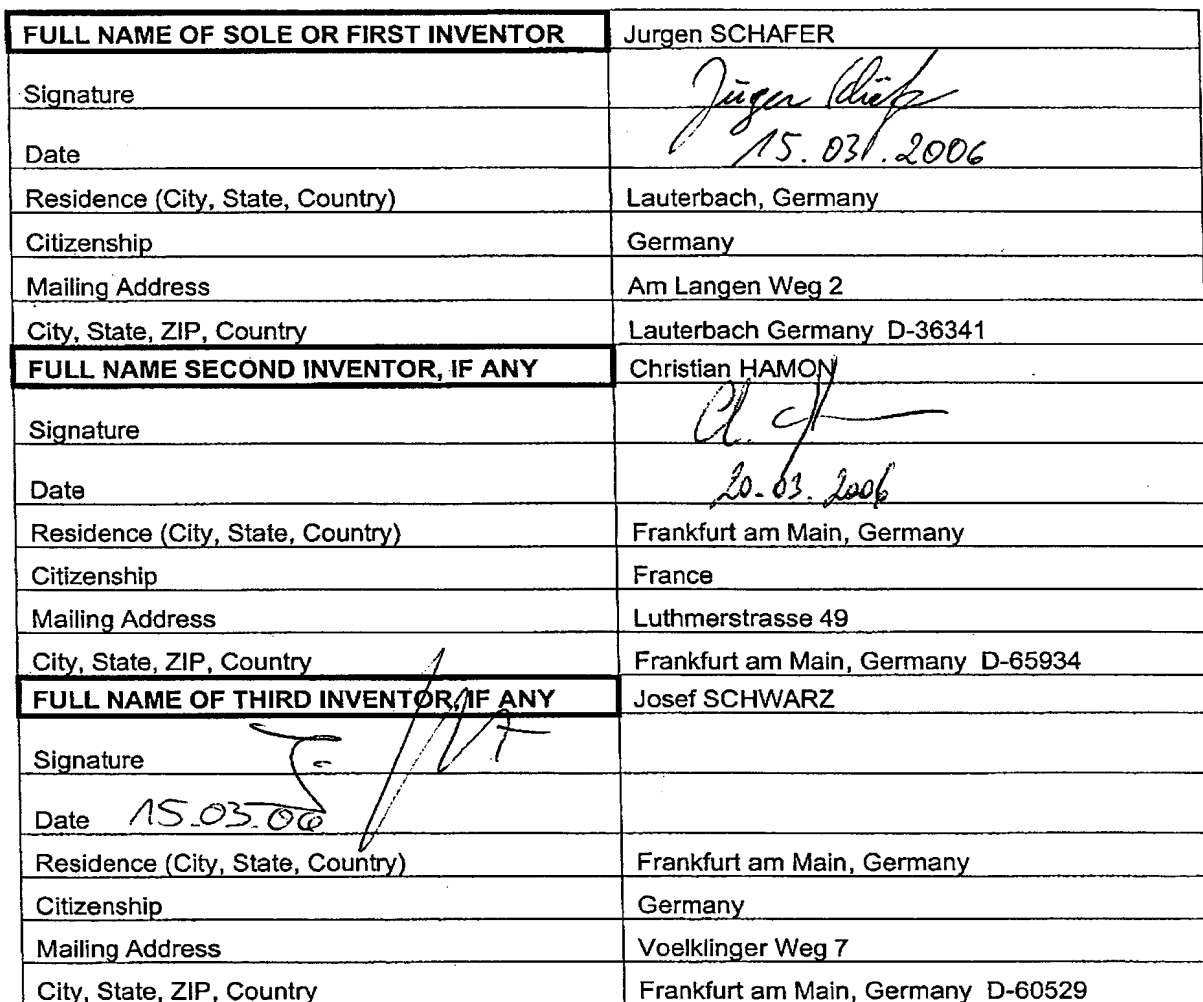 FULL NAME OF SOLE OR FIRST INVENTOR Jurgen SCHAFER
Signature
Date 15.03.2006
Residence (City, State, Country) Lauterbach, Germany
Citizenship Germany
Mailing Address Am Langen Weg 2
City, State, ZIP, Country Lauterbach Germany D-36341
FULL NAME SECOND INVENTOR, IF ANY Christian HAMON
Signature
Date 20.03.2006
Residence (City, State, Country) Frankfurt am Main, Germany
Citizenship France
Mailing Address Luthmerstrasse 49
City, State, ZIP, Country Frankfurt am Main, Germany D-65934
FULL NAME OF THIRD INVENTOR, IF ANY Josef SCHWARZ
Signature
Date 15.03.06
Residence (City, State, Country) Frankfurt am Main, Germany
Citizenship Germany
Mailing Address Voelklinger Weg 7
City, State, ZIP, Country Frankfurt am Main, Germany D-60529